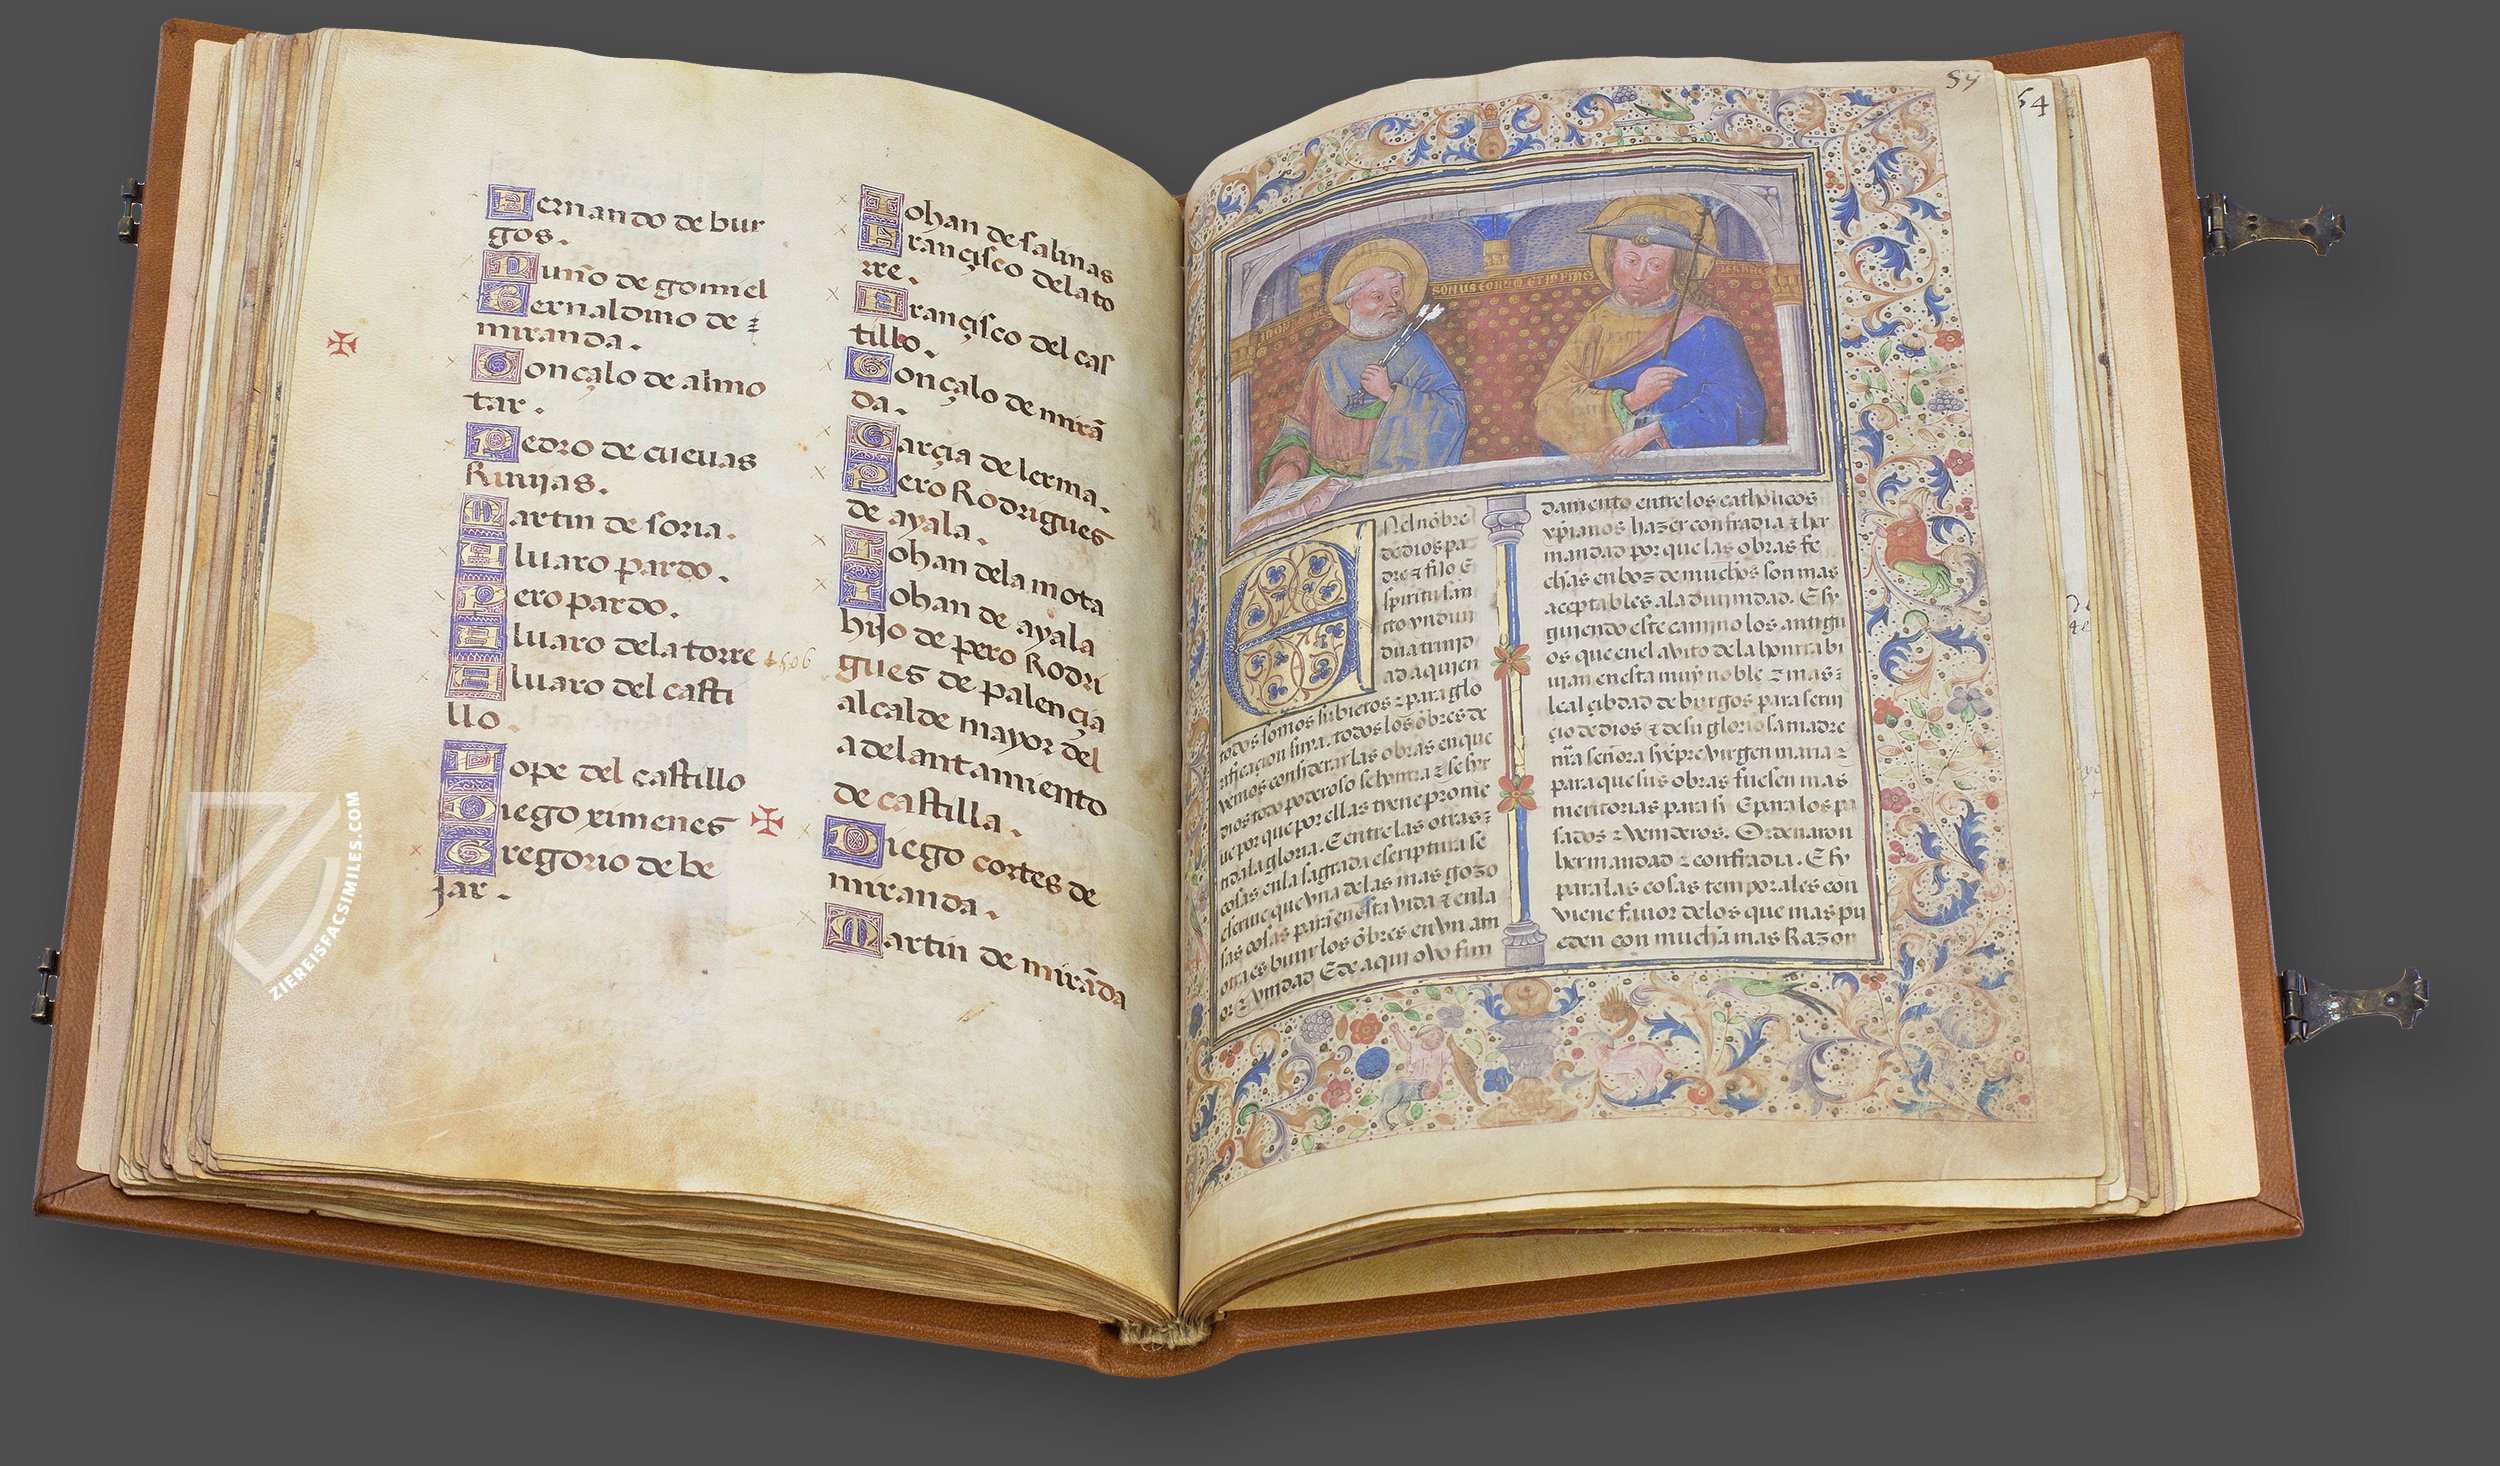 Fernando de bur
gos.
Nuño de gomiel
Bernaldino de
miranda.
Gonçalo de almo
tar.
Pedro de cuevas
Ruuyas.
Martin de soria.
Aluaro pardo.
Pero pardo.
Aluaro dela torre 1506
Aluaro del casti
llo.
Lope del castillo
Diego ximenes
Gregorio de be
jar.
Johan de salinas
Françisco dela to
rre.
Françisco del cas
tillo.
Gonçalo de mirã
da.
Garçia de lerma.
Pero Rodrigues
de ayala.
Johan dela mota
Johan de ayala
hijo de pero Rodri
gues de palençia
alcalde mayor del
adelantamiento
de castilla.
Diego cortes de
miranda.
Martin de mirãda
ZIEREISFACSIMILES.COM
54
ENel nõbre
de dios pa
dre z fijo E
spiritu san
to vn diui
dua trinid
ad a quien
todos somos subietos z para glo
rificaçion suya. todos los õbres de
vemos considerar las obras en que
dios todo poderoso se honrra z se syr
ue por que por ellas tiene prome
tida la gloria. E entre las otras
cosas en la sagrada escriptura se
escriue que vna delas mas gozo
sas cosas para en esta vida z en la
otra es biuir los õbres en vn am
or z vnidad E de aqui ovo fun
damento entre los catholicos
xpianos hazer confradia z her
mandad por que las obras fe
chas en boz de muchos son mas
aceptables a la diuinidad. E sy
guiendo este camino los antigu
os que en el avito de la honrra bi
uian en esta muy noble z mas
leal çibdad de burgos para serui
çio de dios z de su gloriosa madre
nr̃a señora syẽpre virgen maria z
para que sus obras fuesen mas
meritorias para si E para los pa
sados z venideros. Ordenaron
hermandad z confradia. E sy
para las cosas temporales con
viene fauor delos que mas pu
eden con mucha mas Razon